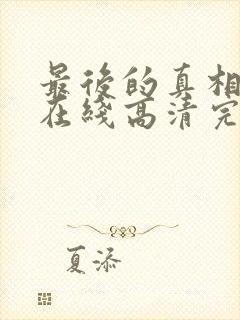 最後的真相
在綫高清完
夏添